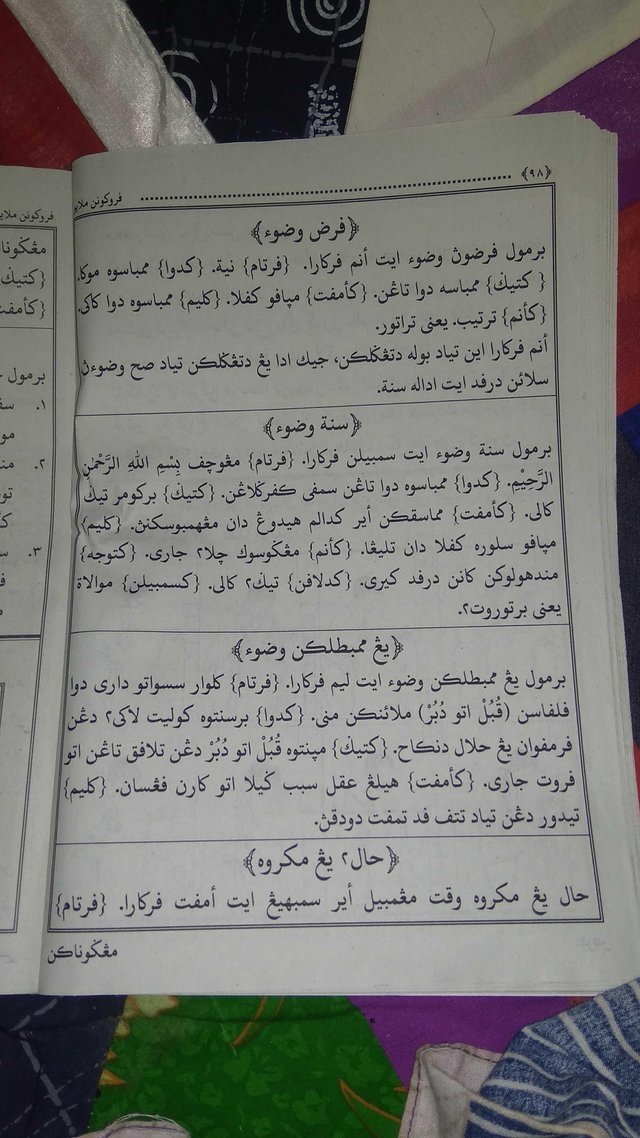 ﴿٩٨﴾ فروكونن ملايو
﴿فرض وضوء﴾
برمول فرضوڽ وضوء ايت أنم فركارا. {فرتام} نية. {كدوا} ممباسوه موكا.
{كتيݢ} ممباسه دوا تاڠن. {كأمفت} مڽاڤو كفلا. {كليم} ممباسوه دوا كاكي.
{كأنم} ترتيب. يعنى تراتور.
أنم فركارا اين تياد بوله دتڠݢلكن، جيك ادا يڠ دتڠݢلكن تياد صح وضوءڽ
سلائن درفد ايت اداله سنة.
﴿سنة وضوء﴾
برمول سنة وضوء ايت سمبيلن فركارا. {فرتام} مڠوچف بِسْمِ اللهِ الرَّحْمٰنِ
الرَّحِيْمِ. {كدوا} ممباسوه دوا تاڠن سمفى كفرݢلاڠن. {كتيݢ} بركومر تيݢ
كالى. {كأمفت} مماسقكن أير كدالم هيدوڠ دان مڠهمبوسكنڽ. {كليم}
مڽافو سلوره كفلا دان تليڠا. {كأنم} مڠݢوسوك چلا٢ جارى. {كتوجه}
مندهولوكن كانن درفد كيرى. {كدلافن} تيݢ٢ كالى. {كسمبيلن} موالاة
يعنى برتوروت٢.
﴿يڠ ممبطلكن وضوء﴾
برمول يڠ ممبطلكن وضوء ايت ليم فركارا. {فرتام} كلوار سسواتو دارى دوا
فلفاسن (قُبُلْ اتو دُبُرْ) ملائنكن منى. {كدوا} برسنتوه كوليت لاكى٢ دڠن
فرمفوان يڠ حلال دنكاح. {كتيݢ} مڽنتوه قُبُلْ اتو دُبُرْ دڠن تلافق تاڠن اتو
فروت جارى. {كأمفت} هيلڠ عقل سبب ݢيلا اتو كارن فڠسان. {كليم}
تيدور دڠن تياد تتف فد تمفت دودقڽ.
﴿حال٢ يڠ مكروه﴾
حال يڠ مكروه وقت مڠمبيل أير سمبهيڠ ايت أمفت فركارا. {فرتام}
مڠݢوناكن